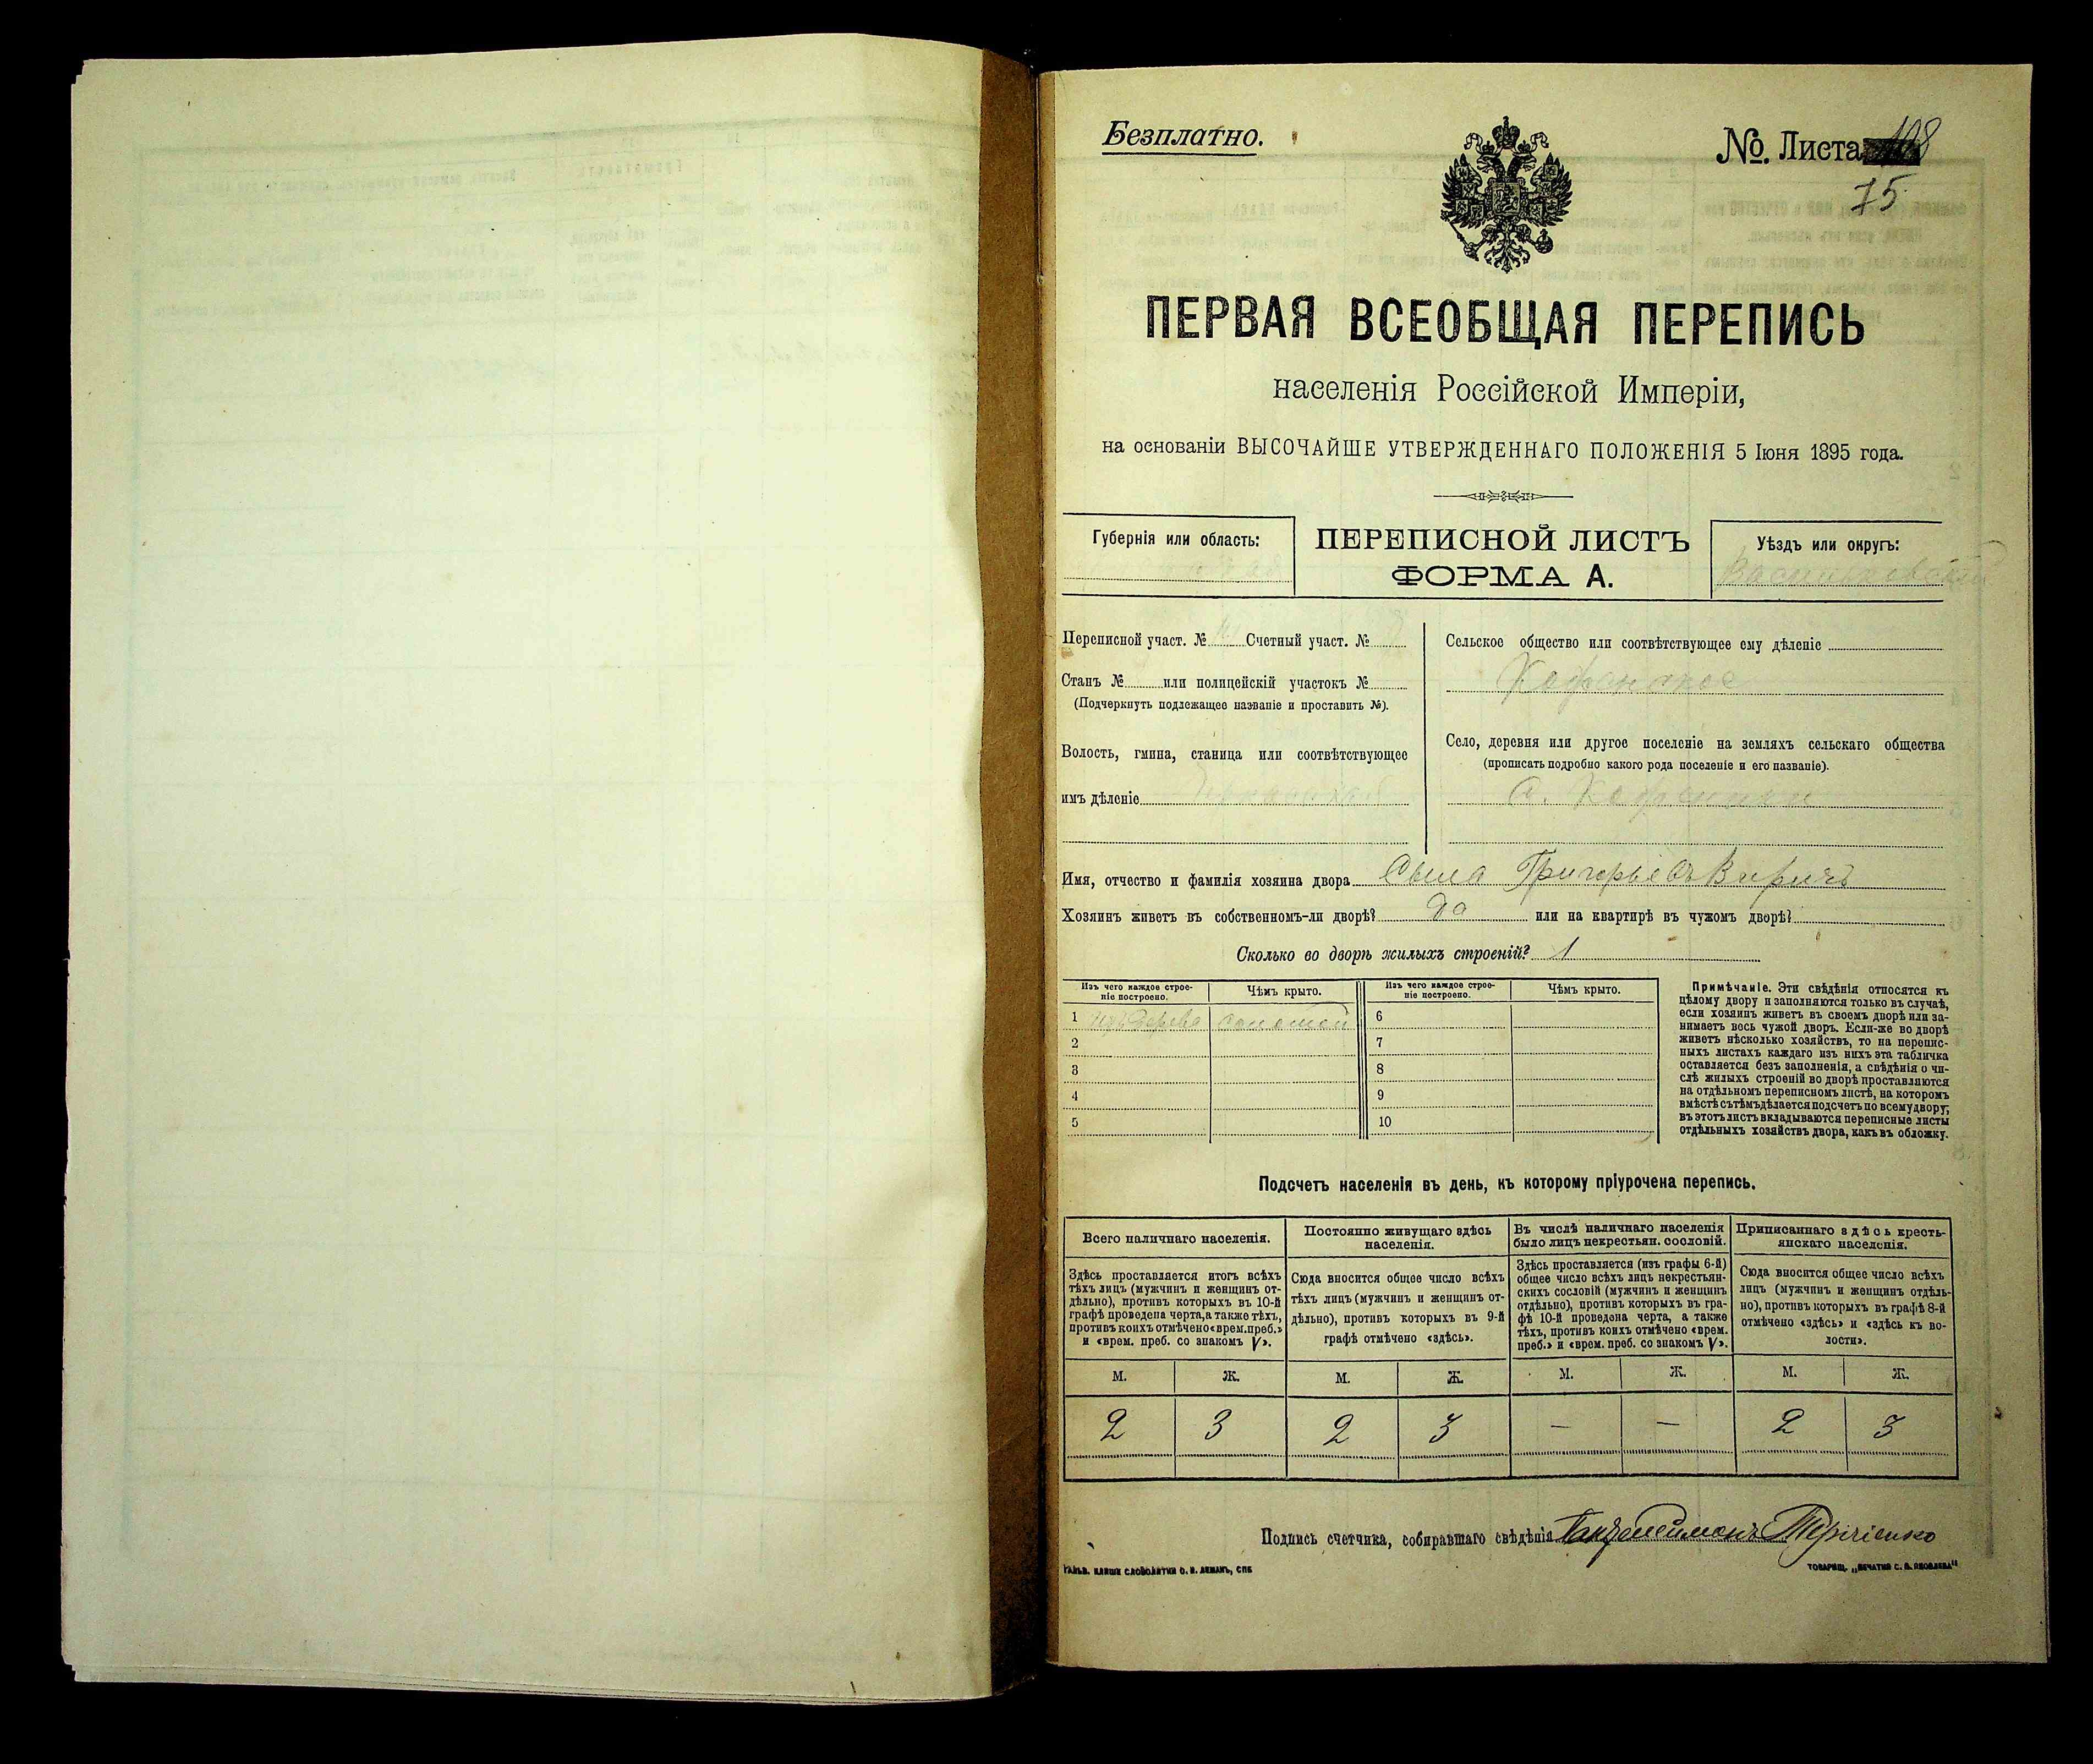 Безплатно.
№. Листа 108
75
ПЕРВАЯ ВСЕОБЩАЯ ПЕРЕПИСЬ
населенія Россійской Имперіи,
на основаніи ВЫСОЧАЙШЕ УТВЕРЖДЕННАГО ПОЛОЖЕНІЯ 5 Іюня 1895 года.
Губернія или область:
ПЕРЕПИСНОЙ ЛИСТЪ
ФОРМА А.
Уѣздъ или округъ:
Васильковскій
Переписной участ. № Счетный участ. №
Станъ № или полицейскій участокъ №
(Подчеркнуть подлежащее названіе и проставить №).
Волость, гмина, станица или соотвѣтствующее
имъ дѣленіе
Сельское общество или соотвѣтствующее ему дѣленіе
Село, деревня или другое поселеніе на земляхъ сельскаго общества
(прописать подробно какого рода поселеніе и его названіе).
Имя, отчество и фамилія хозяина двора Григорьевъ
Хозяинъ живетъ въ собственномъ-ли дворѣ? Да или на квартирѣ въ чужомъ дворѣ?
Сколько во дворѣ жилыхъ строеній? 1
Изъ чего каждое строе-
ніе построено.
Чѣмъ крыто.
Изъ чего каждое строе-
ніе построено.
Чѣмъ крыто.
1 Изъ дерева соломой
2
3
4
5
6
7
8
9
10
Примѣчаніе. Эти свѣдѣнія относятся къ
цѣлому двору и заполняются только въ случаѣ,
если хозяинъ живетъ въ своемъ дворѣ или за-
нимаетъ весь чужой дворъ. Если-же во дворѣ
живетъ нѣсколько хозяйствъ, то на перепис-
ныхъ листахъ каждаго изъ нихъ эта табличка
оставляется безъ заполненія, а свѣдѣнія о чи-
слѣ жилыхъ строеній во дворѣ проставляются
на отдѣльномъ переписномъ листѣ, на которомъ
вмѣстѣ съ тѣмъ дѣлается подсчетъ по всему двору;
въ этотъ листъ вкладываются переписные листы
отдѣльныхъ хозяйствъ двора, какъ въ обложку.
Подсчетъ населенія въ день, къ которому пріурочена перепись.
Всего наличнаго населенія.
Здѣсь проставляется итогъ всѣхъ
тѣхъ лицъ (мужчинъ и женщинъ от-
дѣльно), противъ которыхъ въ 10-й
графѣ проведена черта, а также тѣхъ,
противъ коихъ отмѣчено «врем. преб.»
и «врем. преб. со знакомъ V».
Постоянно живущаго здѣсь
населенія.
Сюда вносится общее число всѣхъ
тѣхъ лицъ (мужчинъ и женщинъ от-
дѣльно), противъ которыхъ въ 9-й
графѣ отмѣчено «здѣсь».
Въ числѣ наличнаго населенія
было лицъ некрестьян. сословій.
Здѣсь проставляется (изъ графы 6-й)
общее число всѣхъ лицъ некрестьян-
скихъ сословій (мужчинъ и женщинъ
отдѣльно), противъ которыхъ въ гра-
фѣ 10-й проведена черта, а также
тѣхъ, противъ коихъ отмѣчено «врем.
преб.» и «врем. преб. со знакомъ V».
Приписаннаго здѣсь кресть-
янскаго населенія.
Сюда вносится общее число всѣхъ
лицъ (мужчинъ и женщинъ отдѣль-
но), противъ которыхъ въ графѣ 8-й
отмѣчено «здѣсь» и «здѣсь къ во-
лости».
М. Ж. М. Ж. М. Ж. М. Ж.
2 3 2 3 — — 2 3
Подпись счетчика, собиравшаго свѣдѣнія
ГАЛЬВ. КЛИШЕ СЛОВОЛИТНИ О. И. ЛЕМАНЪ, СПБ
ТОВАРИЩ. „ПЕЧАТНЯ С. П. ЯКОВЛЕВА"